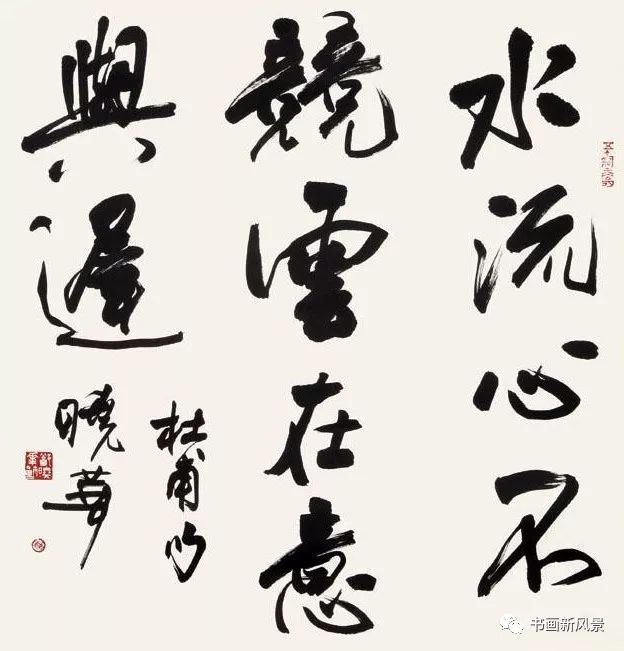 水流心不
競雲在意
與遲
杜甫句
曉華
书画新风景